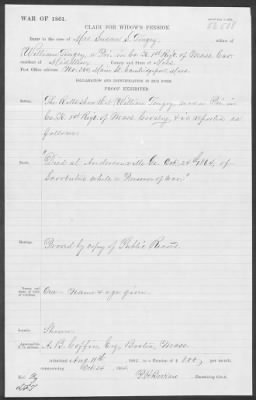 WAR OF 1861.
CLAIM FOR WIDOW'S PENSION.
Brief in the case of Mrs Susan S. Tingey, widow of
William Tingey, a Pri. in Co. K. 1st Regt. of Mass Cav.
resident of Middlesex County and State of Mass
Post Office address No. Main St. Cambridgeport, Mass.
DECLARATION AND IDENTIFICATION IN DUE FORM.
PROOF EXHIBITED.
Service.
The Rolls show that William Tingey, was a Pri. in
Co. K. 1st Regt. of Mass Cavalry, & is reported as
follows:
Death.
"Died at Andersonville Ga Oct. 24th 1864, of
Scorbutus while a Prisoner of war."
Marriage.
Proved by copy of Public Record.
One. Name & age given.
Loyalty.
Shown.
A. B. Coffin Esq. Boston, Mass.
Admitted Aug 11th 186 , to a Pension of $ 8.00, per month,
commencing Oct. 24, 1864.
Examining Clerk.